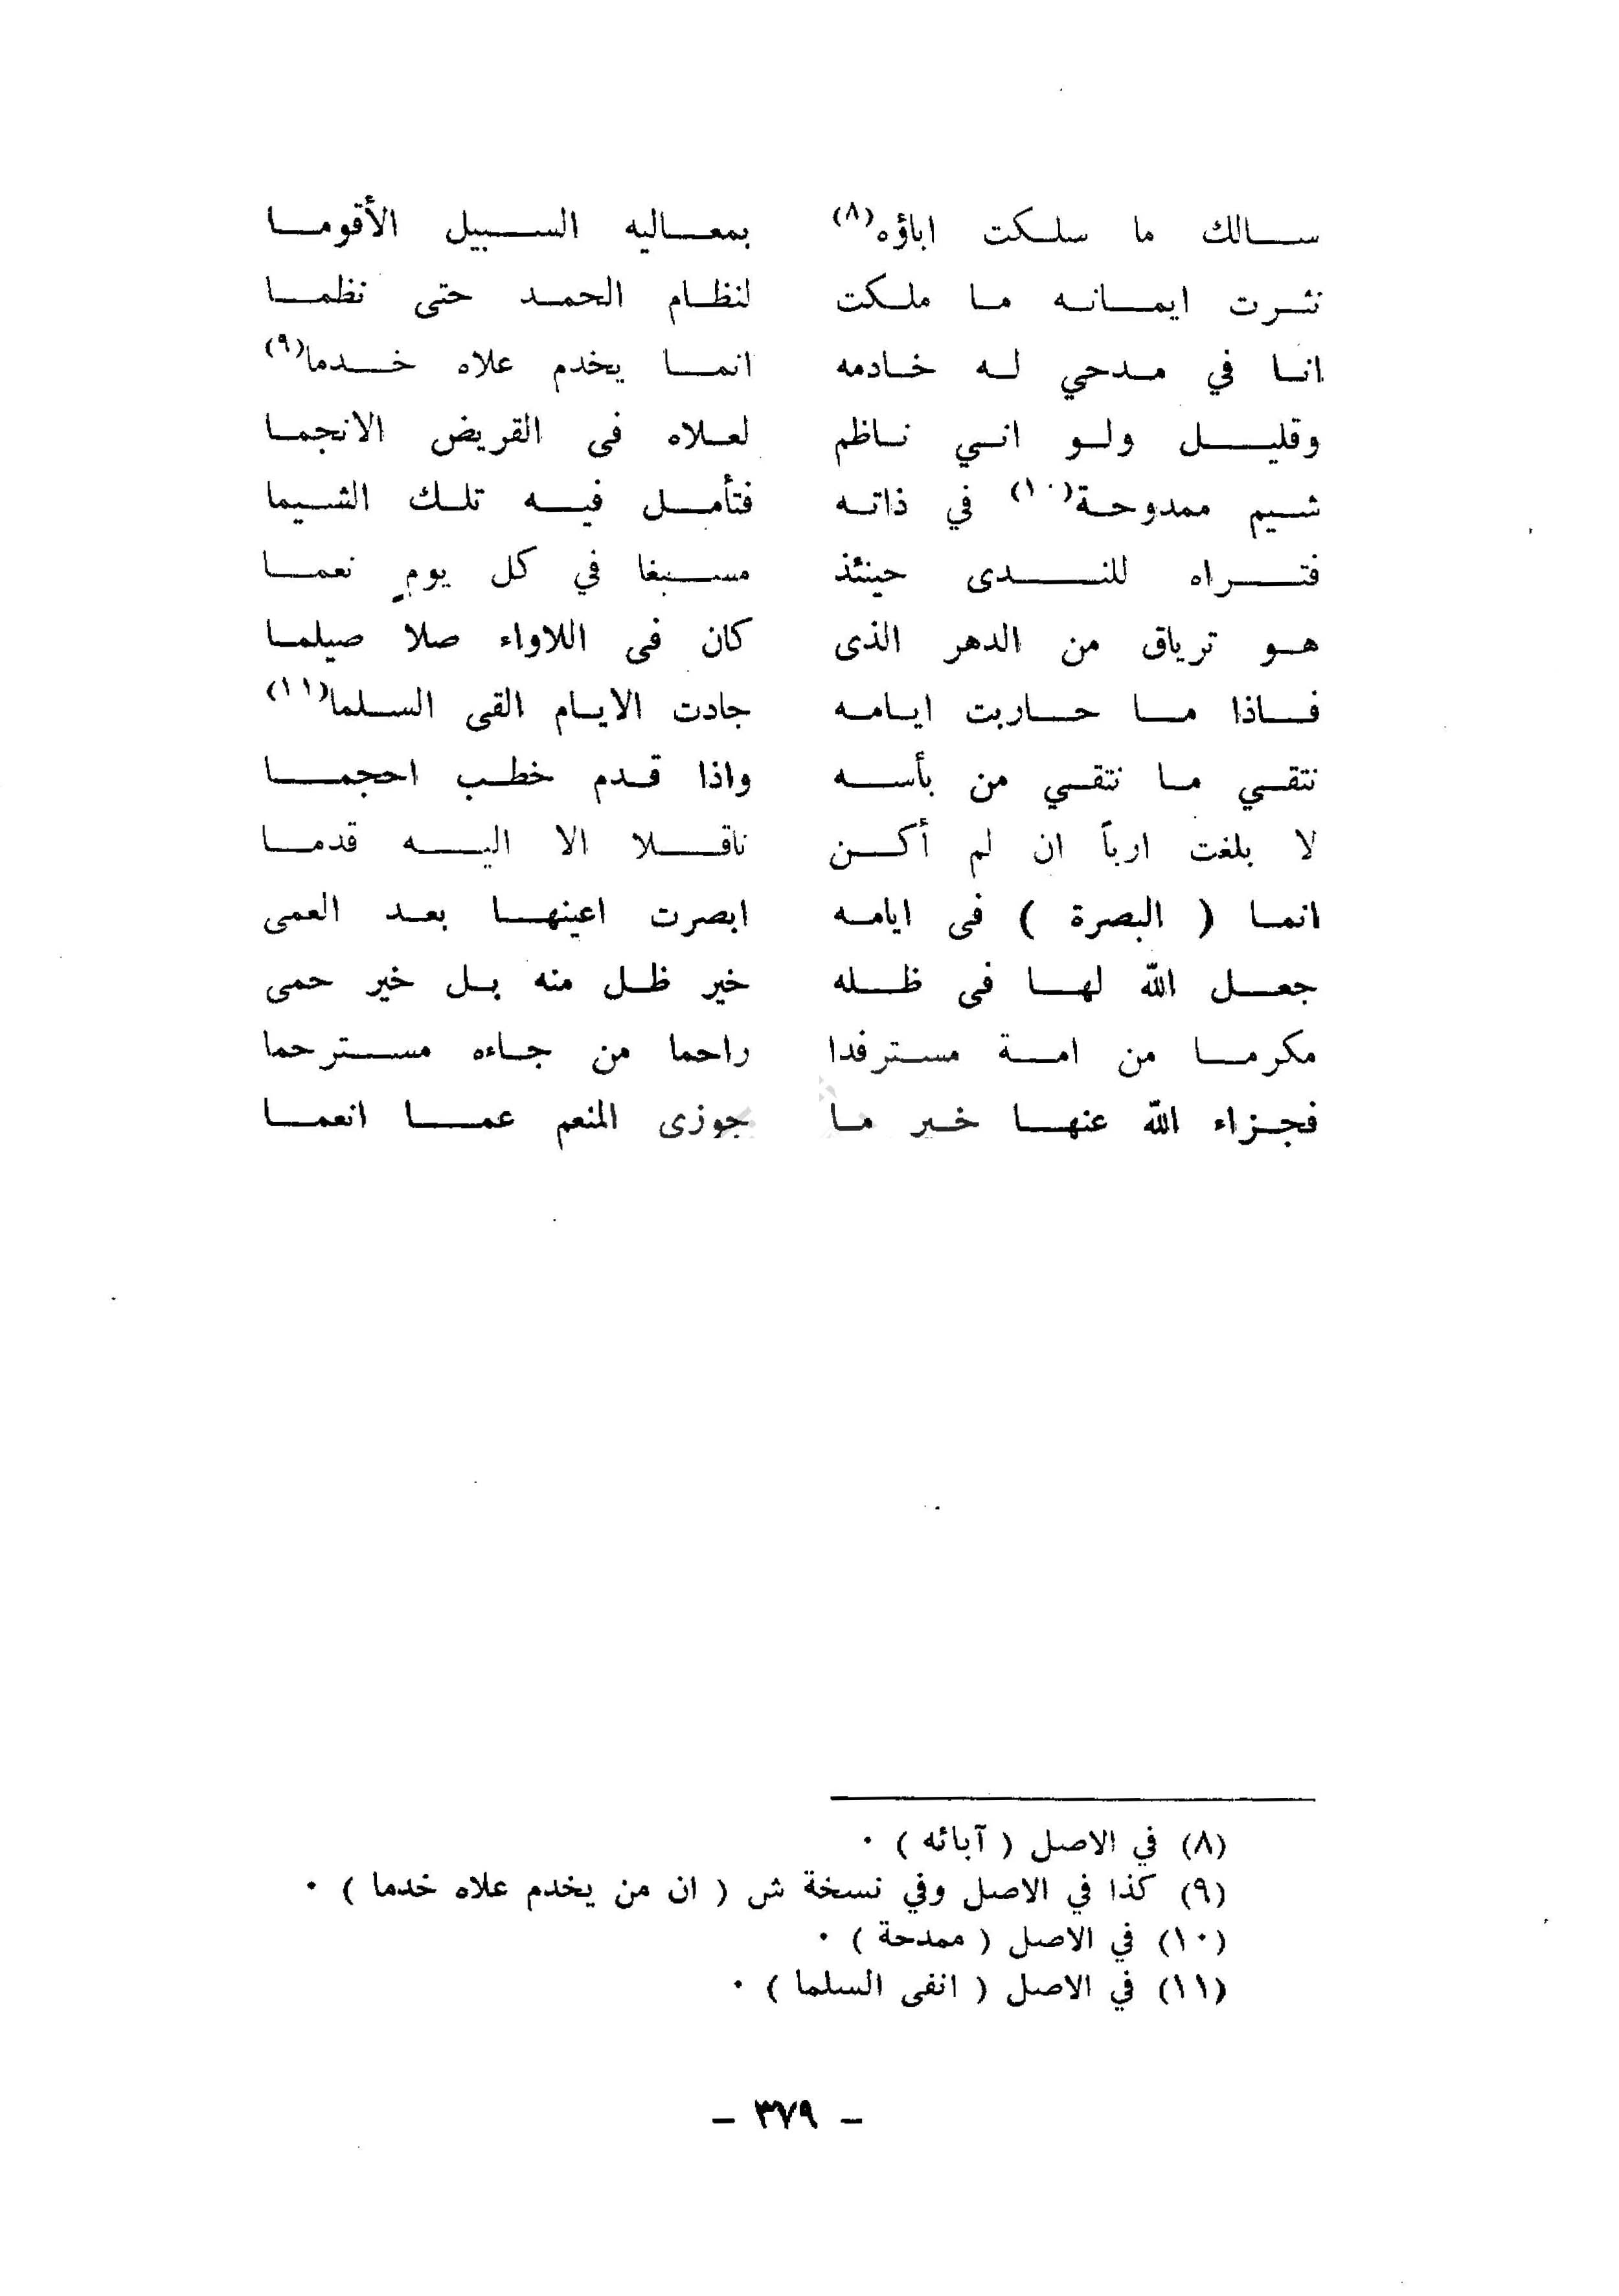 سالك ما سلكت اباؤه(٨) بمعاليه السبيل الأقوما
نثرت ايمانه ما ملكت لنظام الحمد حتى نظما
انا في مدحي له خادمه انما يخدم علاه خدما(٩)
وقليل ولو اني ناظم لعلاه فى القريض الانجما
شيم ممدوحة(١٠) في ذاته فتأمل فيه تلك الشيما
فتراه للندى حينئذ مسبغا في كل يومٍ نعما
هو ترياق من الدهر الذى كان فى اللاواء صلا صيلما
فاذا ما حاربت ايامه جادت الايام القى السلما(١١)
نتقي ما نتقي من بأسه واذا قدم خطب احجما
لا بلغت ارباً ان لم أكن ناقلا الا اليه قدما
انما ( البصرة ) فى ايامه ابصرت اعينها بعد العمى
جعل الله لها فى ظله خير ظل منه بل خير حمى
مكرما من امة مسترفدا راحما من جاءه مسترحما
فجزاء الله عنها خير ما جوزى المنعم عما انعما
(٨) في الاصل ( آبائه ) ٠
(٩) كذا في الاصل وفي نسخة ش ( ان من يخدم علاه خدما ) ٠
(١٠) في الاصل ( ممدحة ) ٠
(١١) في الاصل ( انفى السلما ) ٠
– ٣٧٩ –